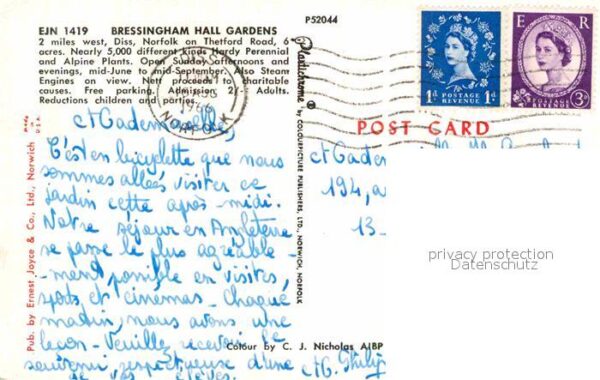 EJN 1419 BRESSINGHAM HALL GARDENS
2 miles west, Diss, Norfolk on Thetford Road, 6
acres. Nearly 5,000 different kinds Hardy Perennial
and Alpine Plants. Open Sunday afternoons and
evenings, mid-June to mid-September. Also Steam
Engines on view. Nett proceeds to charitable
causes. Free parking. Admission 2/- Adults.
Reductions children and parties.
P52044
NORFOLK
1d POSTAGE REVENUE 1d
E R
POSTAGE REVENUE 3d
POST CARD
Pub. by Ernest Joyce & Co., Ltd., Norwich
Made in U.S.A.
Plastichrome ® by COLOURPICTURE PUBLISHERS, LTD., NORWICH, NORFOLK
Mademoiselle,
C'est en bicyclette que nous
sommes allées visiter ce
jardin cette après midi.
Notre séjour en Angleterre
se passe le plus agréable-
ment possible en visites,
spots et cinémas. Chaque
matin, nous avons une
leçon. Veuillez recevoir le
souvenir respectueux d'une
de vos élèves.
M. Philip
194,
13-
Colour by C. J. Nicholas AIBP
privacy protection
Datenschutz